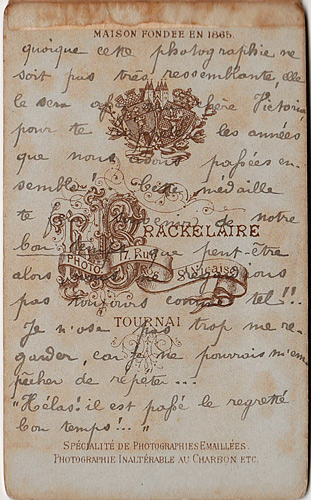 MAISON FONDÉE EN 1865.
quoique cette photographie ne
soit pas très ressemblante, elle
le sera chère Victoria,
pour te les années
que nous avons passées en-
semble! Cette médaille
te de notre
BRACKELAIRE
bon temps que peut-être
PHOTO. 17, Rue
alors nous
pas toujours comme tel!!..
TOURNAI
Je n'ose pas trop me re-
garder, car je ne pourrais m'em-
pêcher de répéter...
"Hélas! il est passé le regretté
bon temps!.. "
SPÉCIALITÉ DE PHOTOGRAPHIES EMAILLÉES.
PHOTOGRAPHIE INALTÉRABLE AU CHARBON ETC.